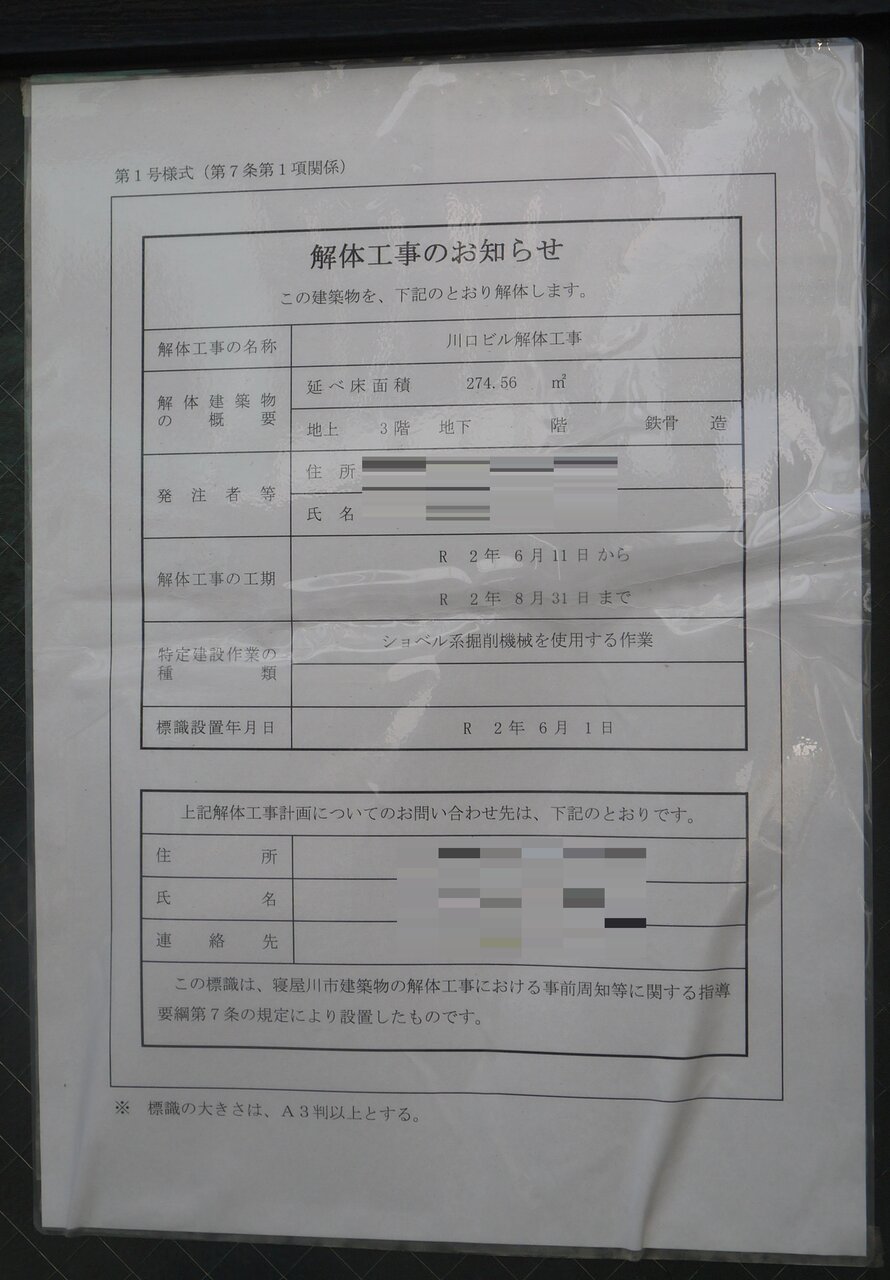 第1号様式（第7条第1項関係）
解体工事のお知らせ
この建築物を、下記のとおり解体します。
解体工事の名称 川口ビル解体工事
解体建築物の概要 延べ床面積 274.56 ㎡
地上 3階 地下 階 鉄骨 造
発注者等 住所
氏名
解体工事の工期 R 2年 6月11日から
R 2年 8月31日まで
特定建設作業の種類 ショベル系掘削機械を使用する作業
標識設置年月日 R 2年 6月 1日
上記解体工事計画についてのお問い合わせ先は、下記のとおりです。
住所
氏名
連絡先
この標識は、寝屋川市建築物の解体工事における事前周知等に関する指導
要綱第7条の規定により設置したものです。
※ 標識の大きさは、A3判以上とする。